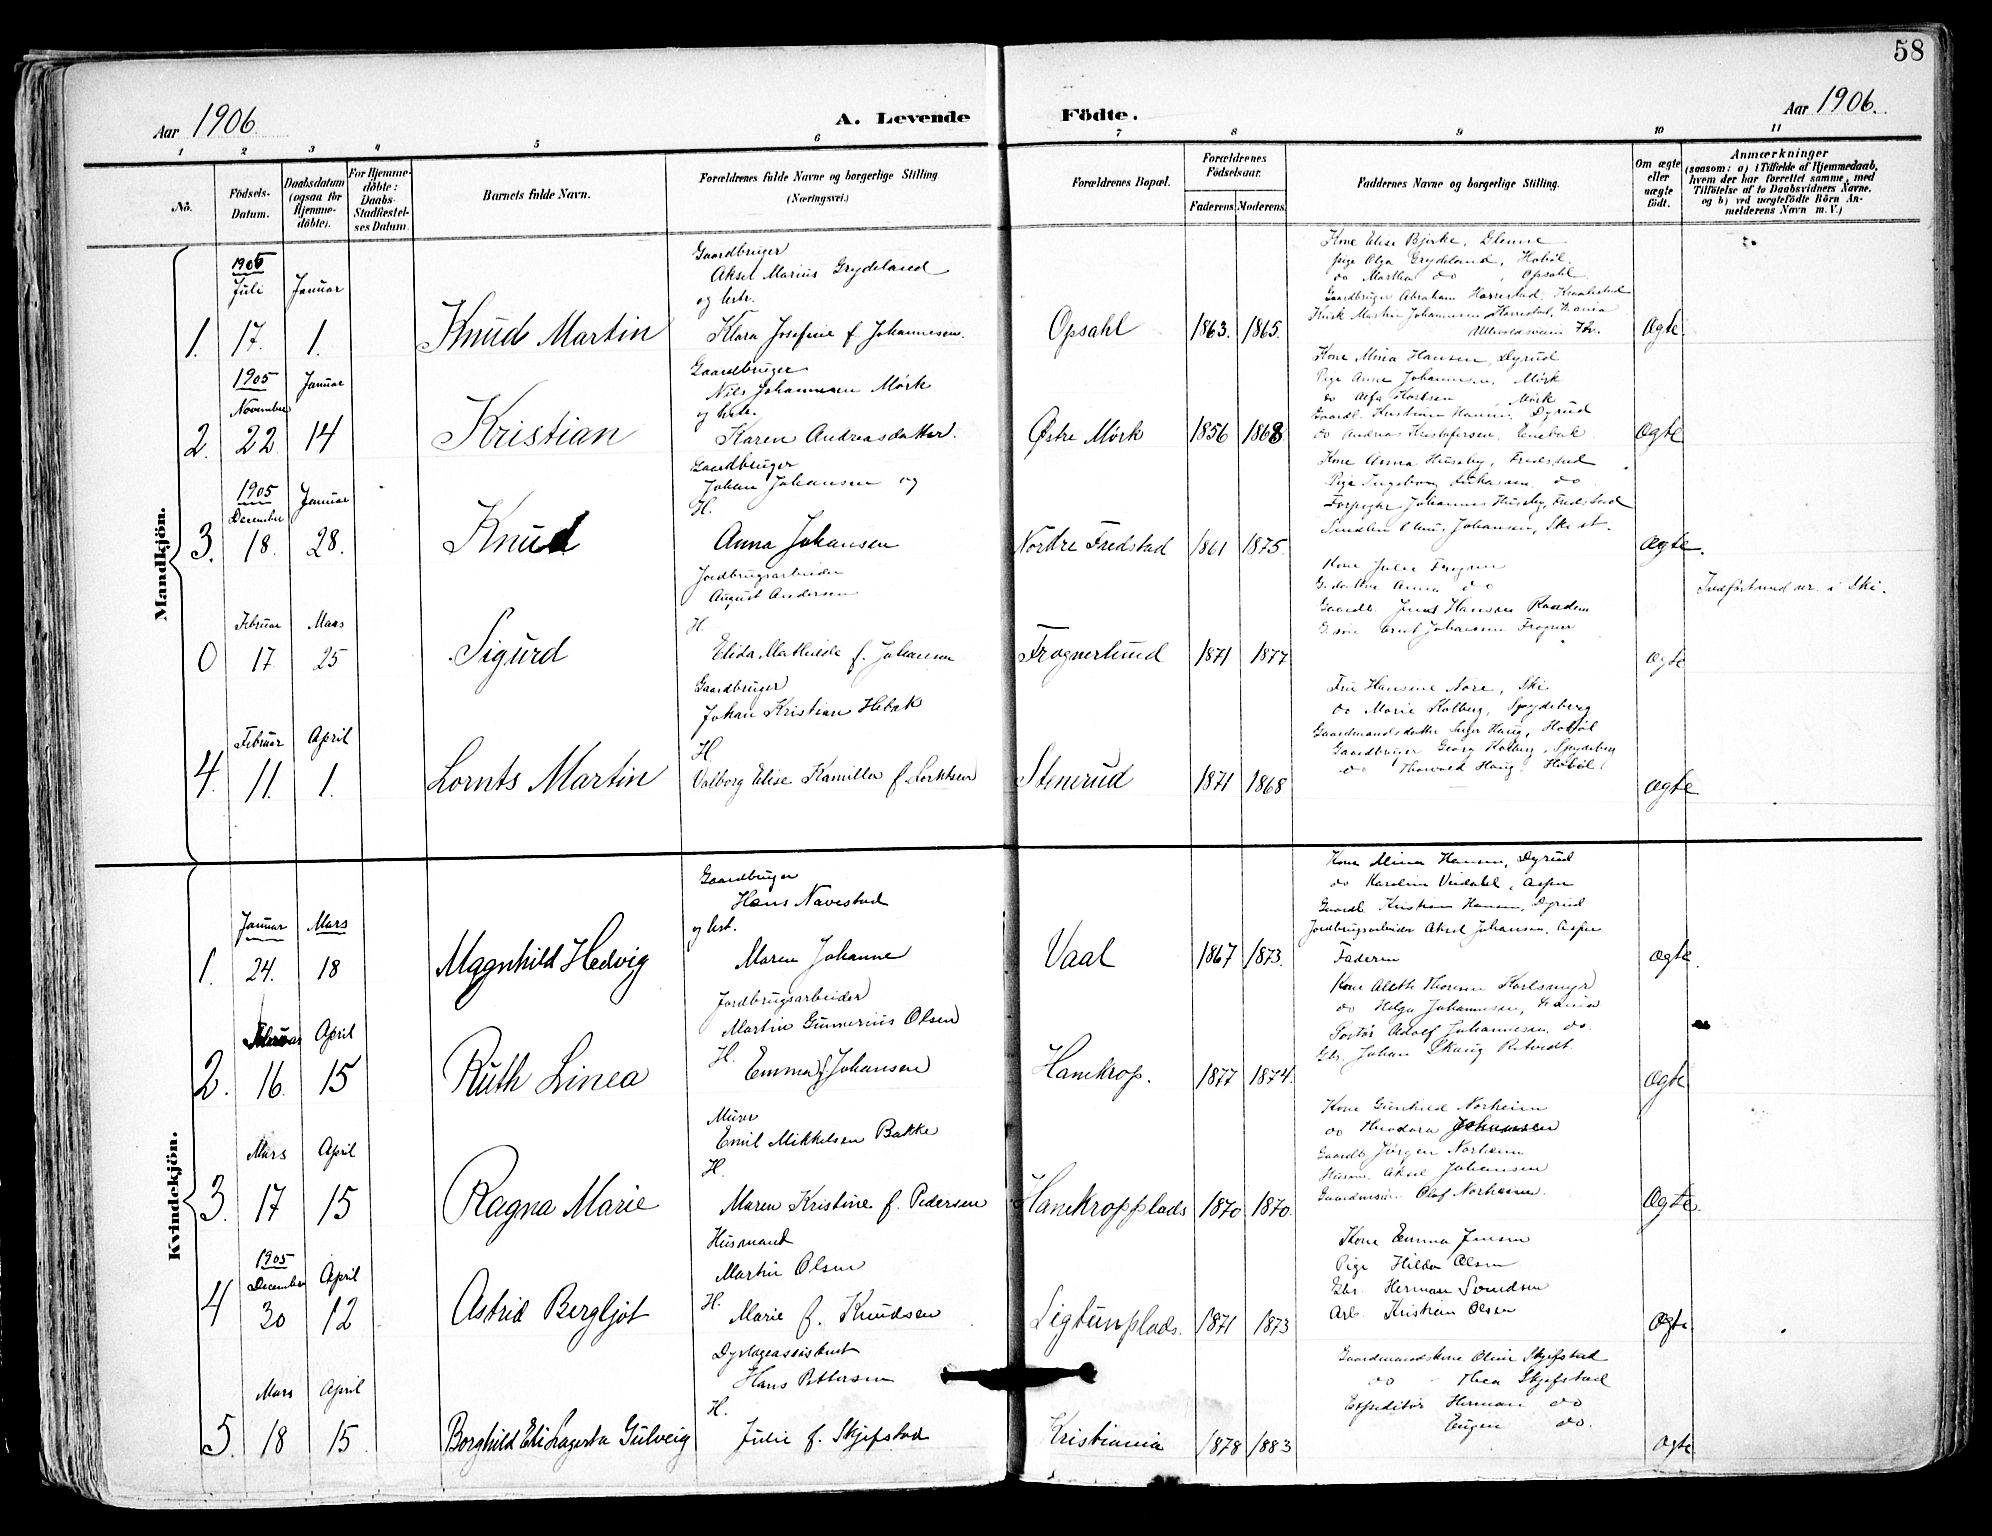 58
Aar 1906.
A. Levende Födte.
Aar 1906.
1 2 3 4 5 6 7 8 9 10 11
No.
Födsels-Datum.
Daabsdatum (ogsaa for Hjemmedöbte).
For Hjemmedöbte: Daabs-Stadfæstelses Datum.
Barnets fulde Navn.
Forældrenes fulde Navne og borgerlige Stilling. (Næringsvei.)
Forældrenes Bopæl.
Forældrenes Födselsaar.
Faderens. Moderens.
Faddernes Navne og borgerlige Stilling.
Om ægte eller uægte födt.
Anmærkninger
(saasom: a) i Tilfælde af Hjemmedaab, hvem der har forrettet samme, med Tilföielse af to Daabsvidners Navne. og b) ved uægtefödte Börn Anmelderens Navn m. V.)
Mandkjön.
1. 1905 Juli 17. Januar 1.
Knud Martin
Gaardbruger
Aksel Marius Grydeland
og hstr.
Klara Josefine f. Johannesen.
Opsahl 1863. 1865.
Kone Elise Bjerke, Glenne
pige Olga Grydeland, Hobøl.
do Martha do, Opsahl
Gaardbruger Abraham Harrestad, Kraakstad
Ægte
2. 1905 November 22. Januar 14
Kristian
Gaardbruger
Nils Johannesen Mørk
og hstr.
Karen Andreasdatter.
Østre Mörk 1856 1868
Kone Mina Hansen, Dyrud
Pige Anne Johannesen, Mörk
do Mörk
Gaardb. Kristian Hansen, Dyrud
do Andreas Kristofersen, Enebak.
Ægte
3. 1905 December 18. Januar 28.
Knud
Gaardbruger
Johan Johansen og
H.
Anna Johansen
Nordre Fredstad 1861 1875.
Kone Anna Huseby, Fredstad
Pige Ingeborg Johansen do
Forpagter Johannes Huseby, Fredstad
Johansen, Ski st.
Ægte.
0 Februar 17 Mars 25
Sigurd
Jordbrugsarbeider
August Andersen
H.
Elida Mathilde f. Johansen
Frognerlund 1871 1877
Kone Julie Frogner
Anna do
Gaardb. Hansen
Johansen Frogner
Ægte
Indført under i Ski.
4. Februar 11. April 1.
Lornts Martin
Gaardbruger
Johan Kristian Hebæk
H
Valborg Elise Kamilla f. Lorntsen
Stenerud 1871 1868
Fru Hansine Nore, Ski
do Marie Kolberg, Spydeberg
Gaardmandsdatter Inger Haug, Hobøl
Gaardbruger Georg Kolberg, Spydeberg
do Thorvald Haug, Hobøl
Ægte
Kvindekjön.
1. Januar 24. Mars 18
Magnhild Hedvig
Gaardbruger
Hans Navestad
og hst.
Maren Johanne
Vaal 1867 1873.
Kone Mina Hansen, Dyrud
do Karoline Asper
Gaardb Kristian Hansen, Dyrud
Jordbrugsarbeider Aksel Johansen, Asper
Faderen
Ægte.
2. Februar 16. April 15
Ruth Linea
Jordbrugsarbeider
Martin Gunnerius Olsen
H. Emma f. Johansen
Hanekrop. 1877 1874.
Kone Aleth Thoresen
do Helga Johannesen,
Adolf Johannesen, do.
Gbr. Johan Skaug
Ægte
3. Mars 17 April 15
Ragna Marie
Murer
Emil Mikkelsen Bakke
H.
Maren Kristine f. Pedersen
Hanekropplads 1870 1870.
Kone Gunhild Norheim
do Theodora Johansen
Gaardb Jørgen Norheim
Husm. Aksel Johansen
Olof Norheim.
Ægte.
4 1905 December 30 April 12
Astrid Bergljot
Husmand
Martin Olsen
H.
Marie f. Knudsen
Sigtunplads. 1871 1873
Kone Emma Jensen
Pige Hilda Olsen
Gbr. Herman Svendsen
Arb. Kristian Olsen
Ægte
5. Mars 18 April 15
Borghild Eli Lagerta Gulveig
Dyrlægeassistent
Hans Pettersen
H.
Julie f. Skjefstad
Kristiania 1878 1883
Gaardmandskone Oline Skjefstad
do Thea Skjefstad
Expeditør Herman do
Eugen do.
Ægte